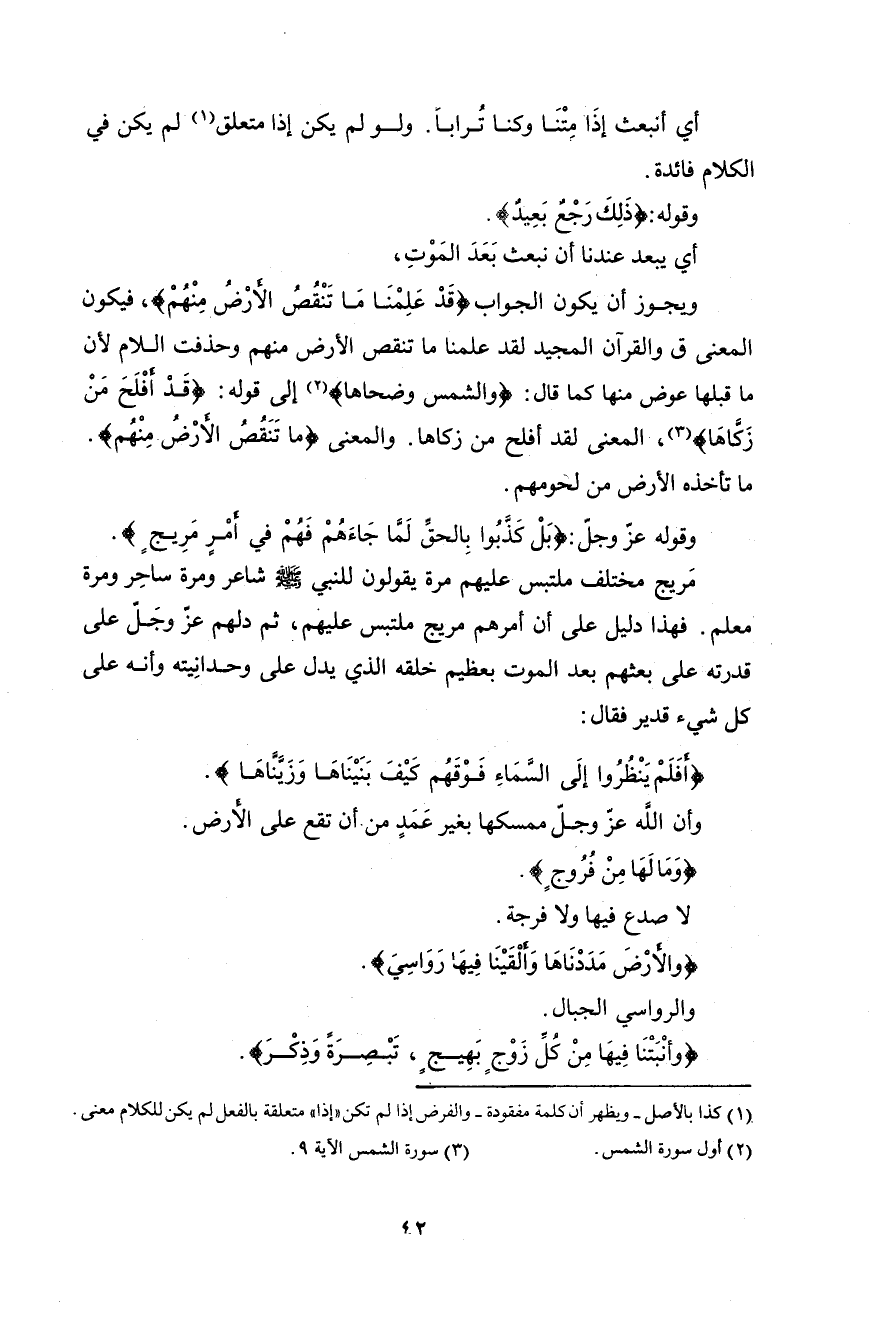 أي أنبعث إذَا مِتْنَـا وكنـا تُـرابـاً. ولـو لم يكن إذا متعلق(١) لم يكن في
الكلام فائدة.
وقوله: ﴿ذَلِكَ رَجْعٌ بَعِيدٌ﴾.
أي يبعد عندنا أن نبعث بَعَدَ المَوْتِ،
ويجـوز أن يكون الجواب ﴿قَدْ عَلِمْنَـا مَـا تَنْقُصُ الأَرْضُ مِنْهُمْ﴾، فيكون
المعنى ق والقرآن المجيد لقد علمنا ما تنقص الأرض منهم وحذفت الـلام لأن
ما قبلها عوض منها كما قال: ﴿والشمس وضحاها﴾(٢) إلى قوله: ﴿قَـدْ أَفْلَحَ مَنْ
زَكَّاهَا﴾(٣)، المعنى لقد أفلح من زكاها. والمعنى ﴿ما تَنَقُصُ الأَرْضُ مِنْهُم﴾.
ما تأخذه الأرض من لحومهم.
وقوله عزّ وجلّ: ﴿بَلْ كَذَّبُوا بِالحقِّ لَمَّا جَاءَهُمْ فَهُمْ في أَمْـرٍ مَرِيـجٍ﴾.
مَريج مختلف ملتبس عليهم مرة يقولون للنبي ﷺ شاعر ومرة ساحِر ومرة
معلم. فهذا دليل على أن أمرهم مريج ملتبس عليهم، ثم دلهم عزّ وجَلّ على
قدرته على بعثهم بعد الموت بعظيم خلقه الذي يدل على وحـدانِيته وأنـه على
كل شيء قدير فقال:
﴿أَفَلَمْ يَنْظُرُوا إلَى السَّمَاءِ فَـوْقَهُم كَيْفَ بَنَيْنَاهَـا وَزَيَّنَّاهَـا﴾.
وأن اللَّه عزّ وجـلّ ممسكها بغير عَمَدٍ من أن تقع على الأَرض.
﴿وَمَا لَهَا مِنْ فُرُوجٍ﴾.
لا صدع فيها ولا فرجة.
﴿والأَرْضَ مَدَدْنَاهَا وَأَلْقَيْنَا فِيهَا رَوَاسِيَ﴾.
والرواسي الجبال.
﴿وأنْبَتْنَا فِيهَا مِنْ كُلِّ زَوْجٍ بَهِيـجٍ، تَبْـصِـرَةً وَذِكْـرَ﴾.
(١) كذا بالأصل ـ ويظهر أن كلمة مفقودة ـ والفرض إذا لم تكن «إذا» متعلقة بالفعل لم يكن للكلام معنى.
(٢) أول سورة الشمس. (٣) سورة الشمس الآية ٩.
٤٢